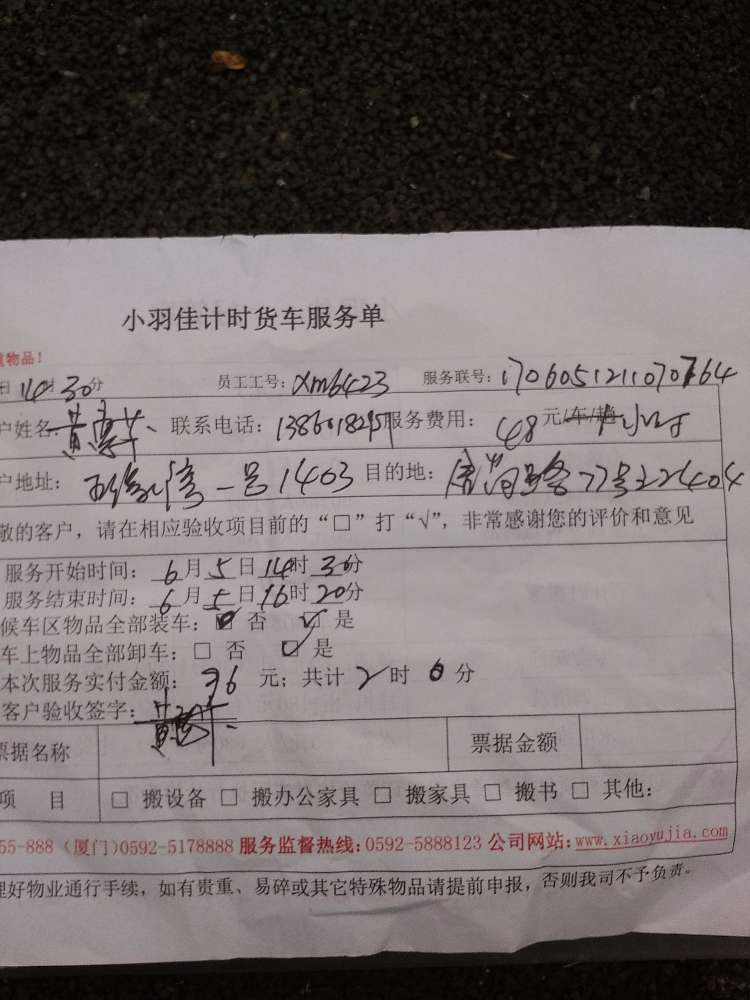 小羽佳计时货车服务单
物品！
日14时30分 员工工号：xm6423 服务联号：1706051211070764
户姓名： 联系电话： 服务费用：48元/车/趟 小时
户地址： 一号1403 目的地： 77号224404
敬的客户，请在相应验收项目前的“□”打“√”，非常感谢您的评价和意见
服务开始时间：6月5日14时30分
服务结束时间：6月5日16时20分
候车区物品全部装车：□ 否 □ 是
车上物品全部卸车：□ 否 □ 是
本次服务实付金额：96 元；共计 2 时 0 分
客户验收签字：
票据名称 票据金额
项 目 □ 搬设备 □ 搬办公家具 □ 搬家具 □ 搬书 □ 其他：
55-888（厦门）0592-5178888 服务监督热线：0592-5888123 公司网站：www.xiaoyujia.com
理好物业通行手续，如有贵重、易碎或其它特殊物品请提前申报，否则我司不予负责。